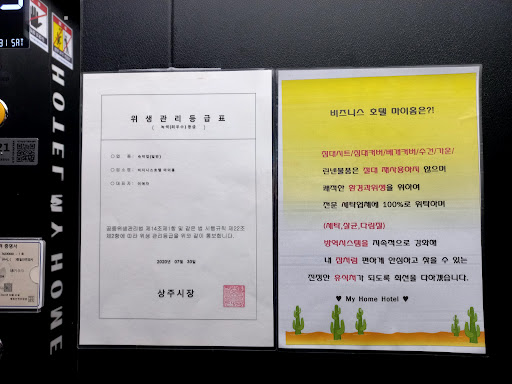 31 SAT
HOTEL MY HOME
위 생 관 리 등 급 표
[ 녹색(최우수) 등급 ]
○ 업 종 : 숙박업(일반)
○ 업 소 명 : 비지니스호텔 마이홈
○ 대 표 자 :
공중위생관리법 제14조제1항 및 같은 법 시행규칙 제22조
제2항에 따라 위생 관리등급을 위와 같이 통보합니다.
2020년 07월 30일
상주시장
비즈니스 호텔 마이홈은?!
침대시트/침대커버/베개커버/수건/가운/
린넨물품은 절대 재사용하지 않으며
쾌적한 환경과위생을 위하여
전문 세탁업체에 100%로 위탁하며
(세탁,살균,다림질)
방역시스템을 지속적으로 강화해
내 집처럼 편하게 안심하고 찾을 수 있는
진정한 휴식처가 되도록 최선을 다하겠습니다.
♥ My Home Hotel ♥